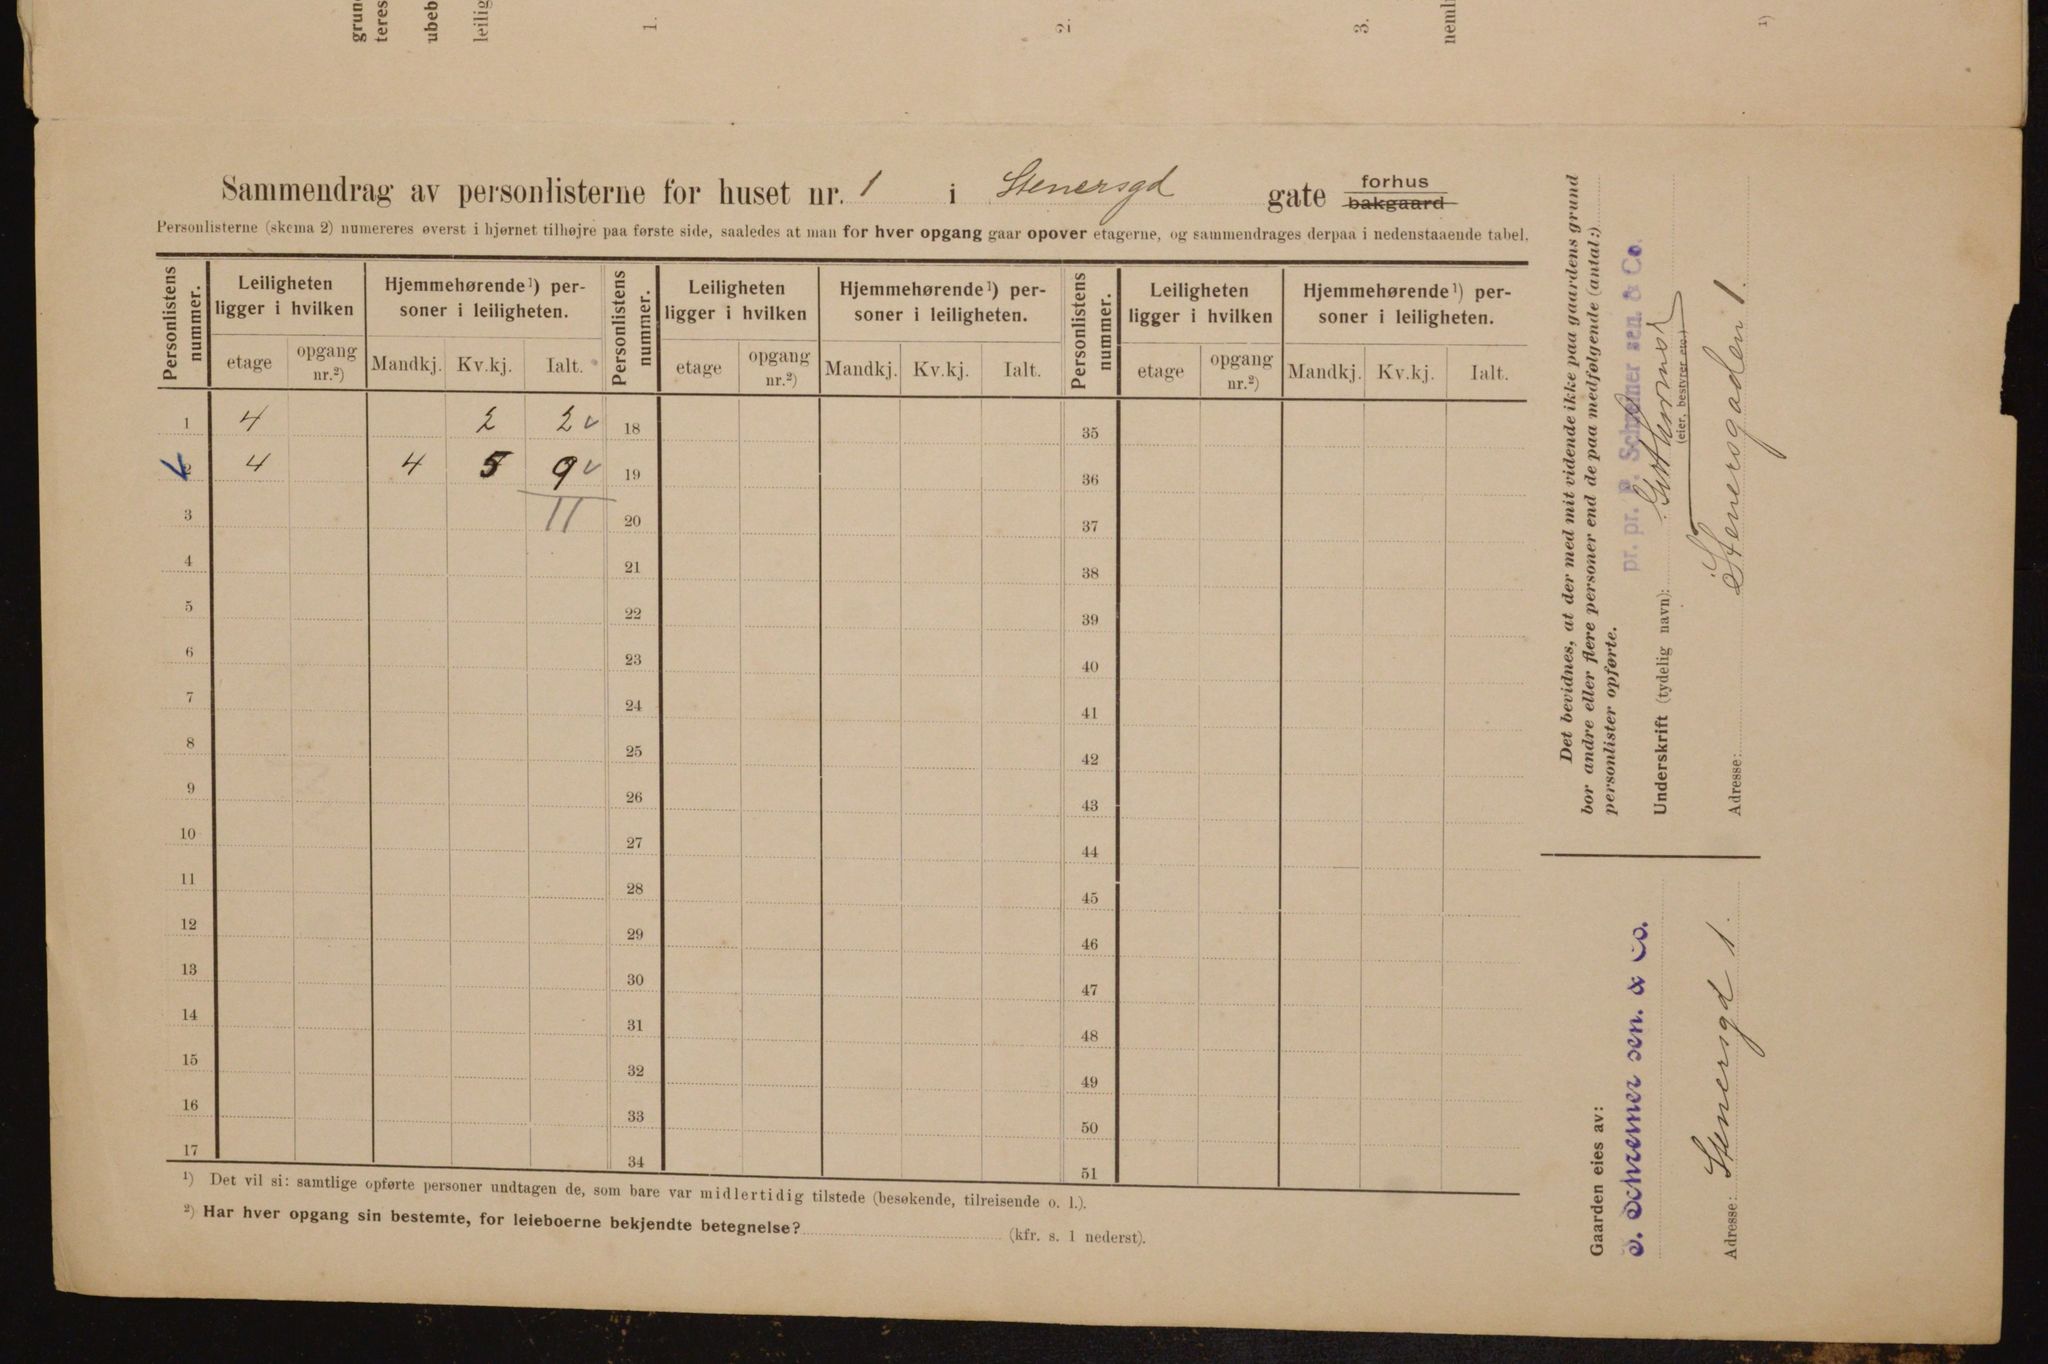 grun
teres
ubeb
leilig
1.
2.
3.
neml
1)
Sammendrag av personlisterne for huset nr. 1 i Stenersgd gate forhus bakgaard
Personlisterne (skema 2) numereres øverst i hjørnet tilhøjre paa første side, saaledes at man for hver opgang gaar opover etagerne, og sammendrages derpaa i nedenstaaende tabel.
Personlistens nummer. Leiligheten ligger i hvilken Hjemmehørende¹) personer i leiligheten. Personlistens nummer. Leiligheten ligger i hvilken Hjemmehørende¹) personer i leiligheten. Personlistens nummer. Leiligheten ligger i hvilken Hjemmehørende¹) personer i leiligheten.
etage opgang nr.²) Mandkj. Kv.kj. Ialt. etage opgang nr.²) Mandkj. Kv.kj. Ialt. etage opgang nr.²) Mandkj. Kv.kj. Ialt.
1 4 2 2 v 18 35
2 4 4 5 9 v 19 36
3 11 20 37
4 21 38
5 22 39
6 23 40
7 24 41
8 25 42
9 26 43
10 27 44
11 28 45
12 29 46
13 30 47
14 31 48
15 32 49
16 33 50
17 34 51
¹) Det vil si: samtlige opførte personer undtagen de, som bare var midlertidig tilstede (besøkende, tilreisende o. l.).
²) Har hver opgang sin bestemte, for leieboerne bekjendte betegnelse? (kfr. s. 1 nederst).
Det bevidnes, at der med mit vidende ikke paa gaardens grund
bor andre eller flere personer end de paa medfølgende (antal:)
personlister opførte.
pr. pr. P. Schreiner sen. & Co.
Underskrift (tydelig navn):
(eier, bestyrer etc.)
Adresse: Stenersgaden 1.
Gaarden eies av:
P. Schreiner sen. & Co.
Adresse: Stenersgd 1.